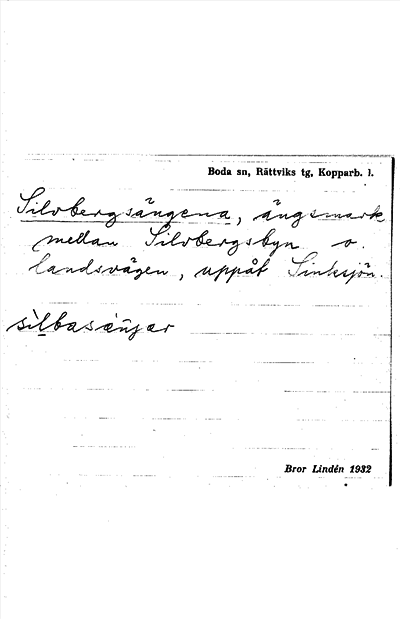 Boda sn, Rättviks tg, Kopparb. l.
Silvbergsängena, ängsmark
mellan Silvbergsbyn o.
landsvägen, uppåt Sinksjön.
Bror Lindén 1932